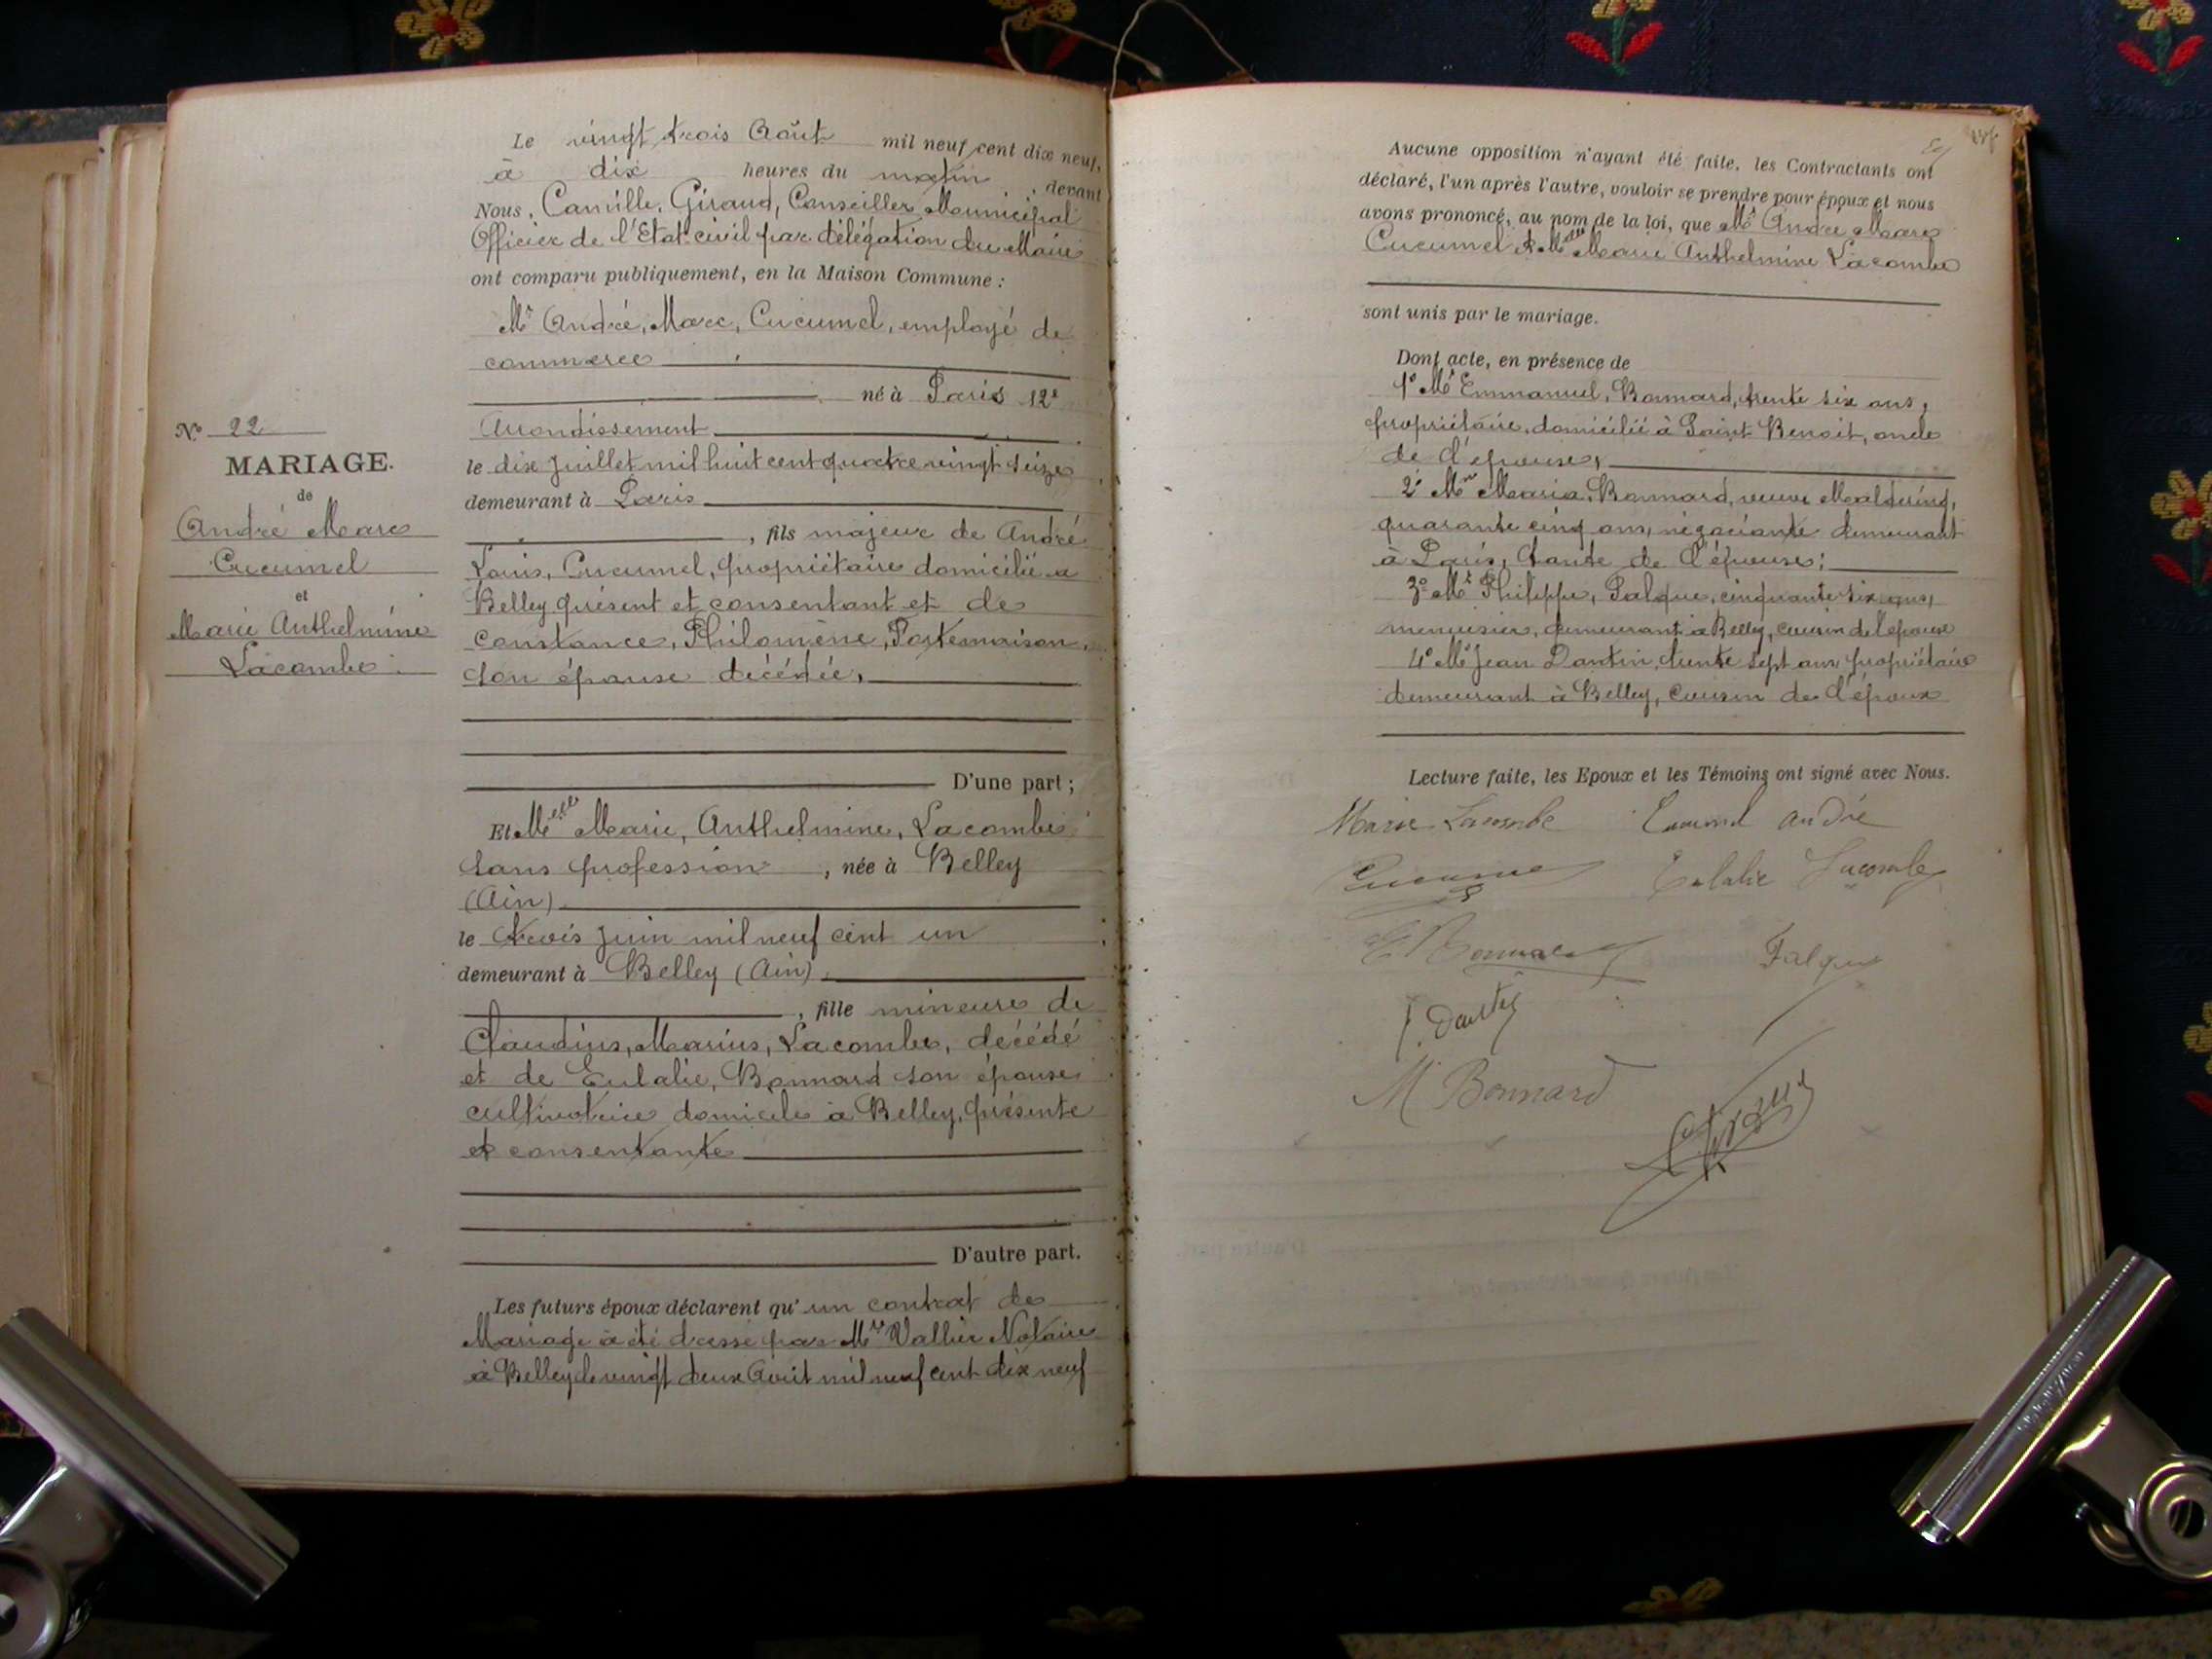 Le vingt trois Août mil neuf cent dix neuf,
à dix heures du matin, devant
Nous, Camille, Giraud, Conseiller Municipal
Officier de l'Etat-civil par délégation du Maire
ont comparu publiquement, en la Maison Commune :
Mr André, Marc, Cucumel, employé de
commerce
né à Paris 12e
Arrondissement
le dix Juillet mil huit cent quatre vingt seize
demeurant à Paris
, fils majeur de André
Louis, Cucumel, propriétaire domicilié a
Belley présent et consentant et de
Constance, Philomène, Portemaison,
son épouse décédée,
D'une part ;
Nº 22
MARIAGE.
de
André Marc
Cucumel
et
Marie Anthelmine
Lacombe
Et Melle Marie, Anthelmine, Lacombe
sans profession, née à Belley
(Ain)
le trois Juin mil neuf cent un
demeurant à Belley (Ain)
, fille mineure de
Claudius, Marius, Lacombe, décédé
et de Eulalie, Bonnard son épouse
cultivatrice domicile à Belley, présente
et consentante
D'autre part.
Les futurs époux déclarent qu'un contrat de
Mariage a été dressé par Me Vallier Notaire
à Belley le vingt deux Août mil neuf cent dix neuf
Aucune opposition n'ayant été faite, les Contractants ont
déclaré, l'un après l'autre, vouloir se prendre pour époux et nous
avons prononcé, au nom de la loi, que Mr André Marc
Cucumel et Melle Marie Anthelmine Lacombe
sont unis par le mariage.
Dont acte, en présence de
1º Mr Emmanuel, Bonnard, trente six ans,
propriétaire, domicilié à Saint Benoit, oncle
de l'épouse,
2º Me Maria, Bonnard, veuve
quarante cinq ans, négociante demeurant
à Paris, tante de l'épouse ;
3º Mr Philippe, Falque, cinquante six ans,
menuisier, demeurant à Belley, cousin de l'épouse
4º Mr Jean Dantin, trente sept ans, propriétaire
demeurant à Belley, cousin de l'époux
Lecture faite, les Epoux et les Témoins ont signé avec Nous.
Marie Lacombe Cucumel André
Cucumel Eulalie Lacombe
E Bonnard Falque
J. Dantin
M Bonnard